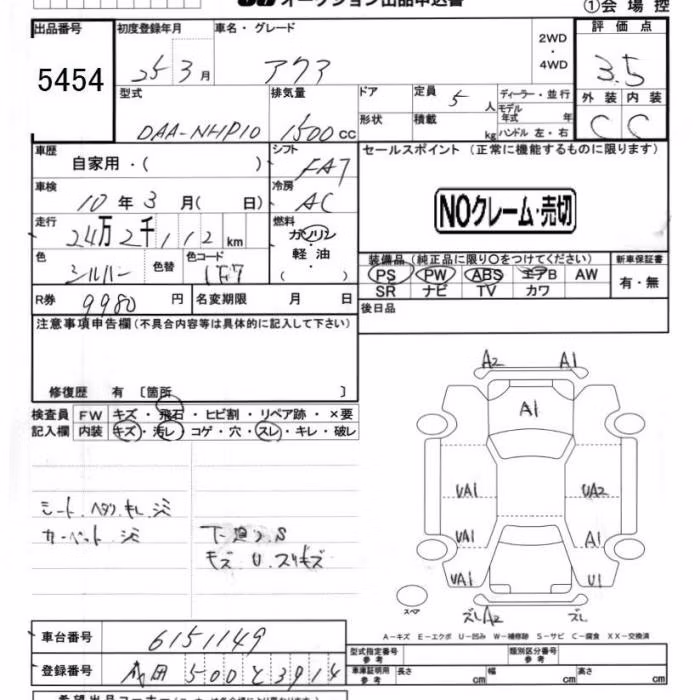 オークション出品申込書 ①会場控
出品番号 初度登録年月 車名・グレード 2WD・4WD 評価点
5454 25年3月 アクア 3.5
型式 排気量 ドア 定員 5人 ディーラー・並行 外装 内装
DAA-NHP10 1500cc 形状 積載 kg モデル年式 年 ハンドル 左・右 C C
車歴 自家用・( ) シフト FAT セールスポイント(正常に機能するものに限ります)
車検 10年3月( 日) 冷房 AC NOクレーム・売切
走行 24万2千112km 燃料 ガソリン 軽油 ( )
色 シルバー 色替 色コード 1F7 装備品(純正品に限り○をつけてください) 新車保証書
PS PW ABS エアB AW 有・無
R券 9980円 名変期限 月 日 SR ナビ TV カワ
注意事項申告欄(不具合内容等は具体的に記入して下さい) 後日品
修復歴 有 〔箇所 〕
検査員 FW キズ・飛石・ヒビ割・リペア跡・×要
記入欄 内装 キズ・汚レ・コゲ・穴・スレ・キレ・破レ
A2 A1
A1
UA1 UA2
UA1 A1
UA1 U1
スペア ズレA2 ズレ
シート、ヘタリ、キレ、シミ
カーペット シミ
下廻り S
キズ U スリキズ
A-キズ E-エクボ U-凹み W-補修跡 S-サビ C-腐食 XX-交換済
車台番号 6151149 型式指定番号 参考 類別区分番号 参考
登録番号 500 と 3914 車庫証明用 参考 長さ cm 幅 cm 高さ cm